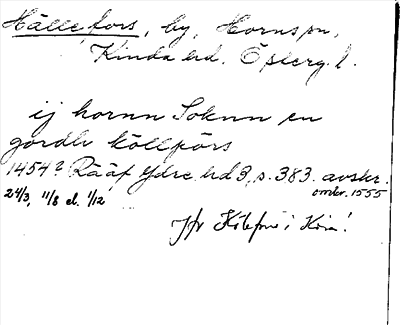 Hällefors, by, Horns sn,
Kinda hd. Östergl.
ij hornn Soknn en
gordh köllförs
1454? Rääf Ydre hd 3, s. 383. avskr.
omkr. 1555
24/3, 11/8 el. 1/12
Jfr i